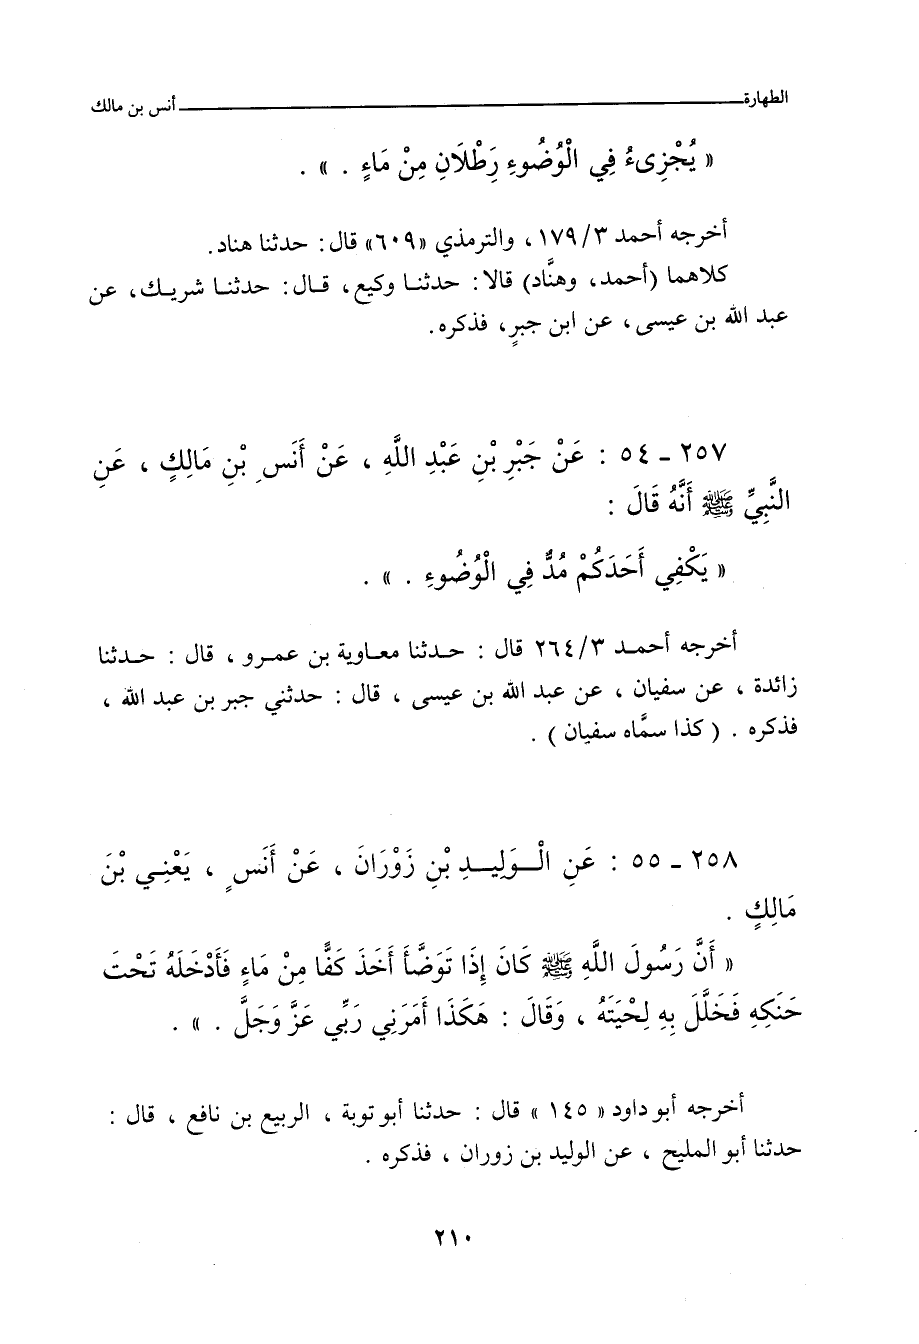 الطهارة أنس بن مالك
« يُجْزِىءُ فِي الْوُضُوءِ رِطْلَانِ مِنْ مَاءٍ . » .
أخرجه أحمد ٣/ ١٧٩، والترمذي «٦٠٩» قال: حدثنا هناد.
كلاهما (أحمد، وهنَّاد) قالا: حدثنا وكيع، قال: حدثنا شريك، عن
عبد الله بن عيسى، عن ابن جبرٍ، فذكره.
٢٥٧ - ٥٤ : عَنْ جَبْرِ بْنِ عَبْدِ اللَّهِ ، عَنْ أَنَسِ بْنِ مَالِكٍ ، عَنِ
النَّبِيِّ ﷺ أَنَّهُ قَالَ :
« يَكْفِي أَحَدَكُمْ مُدٌّ فِي الْوُضُوءِ . » .
أخرجه أحمد ٣/ ٢٦٤ قال : حدثنا معاوية بن عمرو ، قال : حدثنا
زائدة ، عن سفيان ، عن عبد الله بن عيسى ، قال : حدثني جبر بن عبد الله ،
فذكره . ( كذا سمَّاه سفيان ) .
٢٥٨ - ٥٥ : عَنِ الْوَلِيدِ بْنِ زَوْرَانَ ، عَنْ أَنَسٍ ، يَعْنِي بْنَ
مَالِكٍ .
« أَنَّ رَسُولَ اللَّهِ ﷺ كَانَ إِذَا تَوَضَّأَ أَخَذَ كَفًّا مِنْ مَاءٍ فَأَدْخَلَهُ تَحْتَ
حَنَكِهِ فَخَلَّلَ بِهِ لِحْيَتَهُ ، وَقَالَ : هَكَذَا أَمَرَنِي رَبِّي عَزَّ وَجَلَّ . » .
أخرجه أبو داود « ١٤٥ » قال : حدثنا أبو توبة ، الربيع بن نافع ، قال :
حدثنا أبو المليح ، عن الوليد بن زوران ، فذكره .
٢١٠